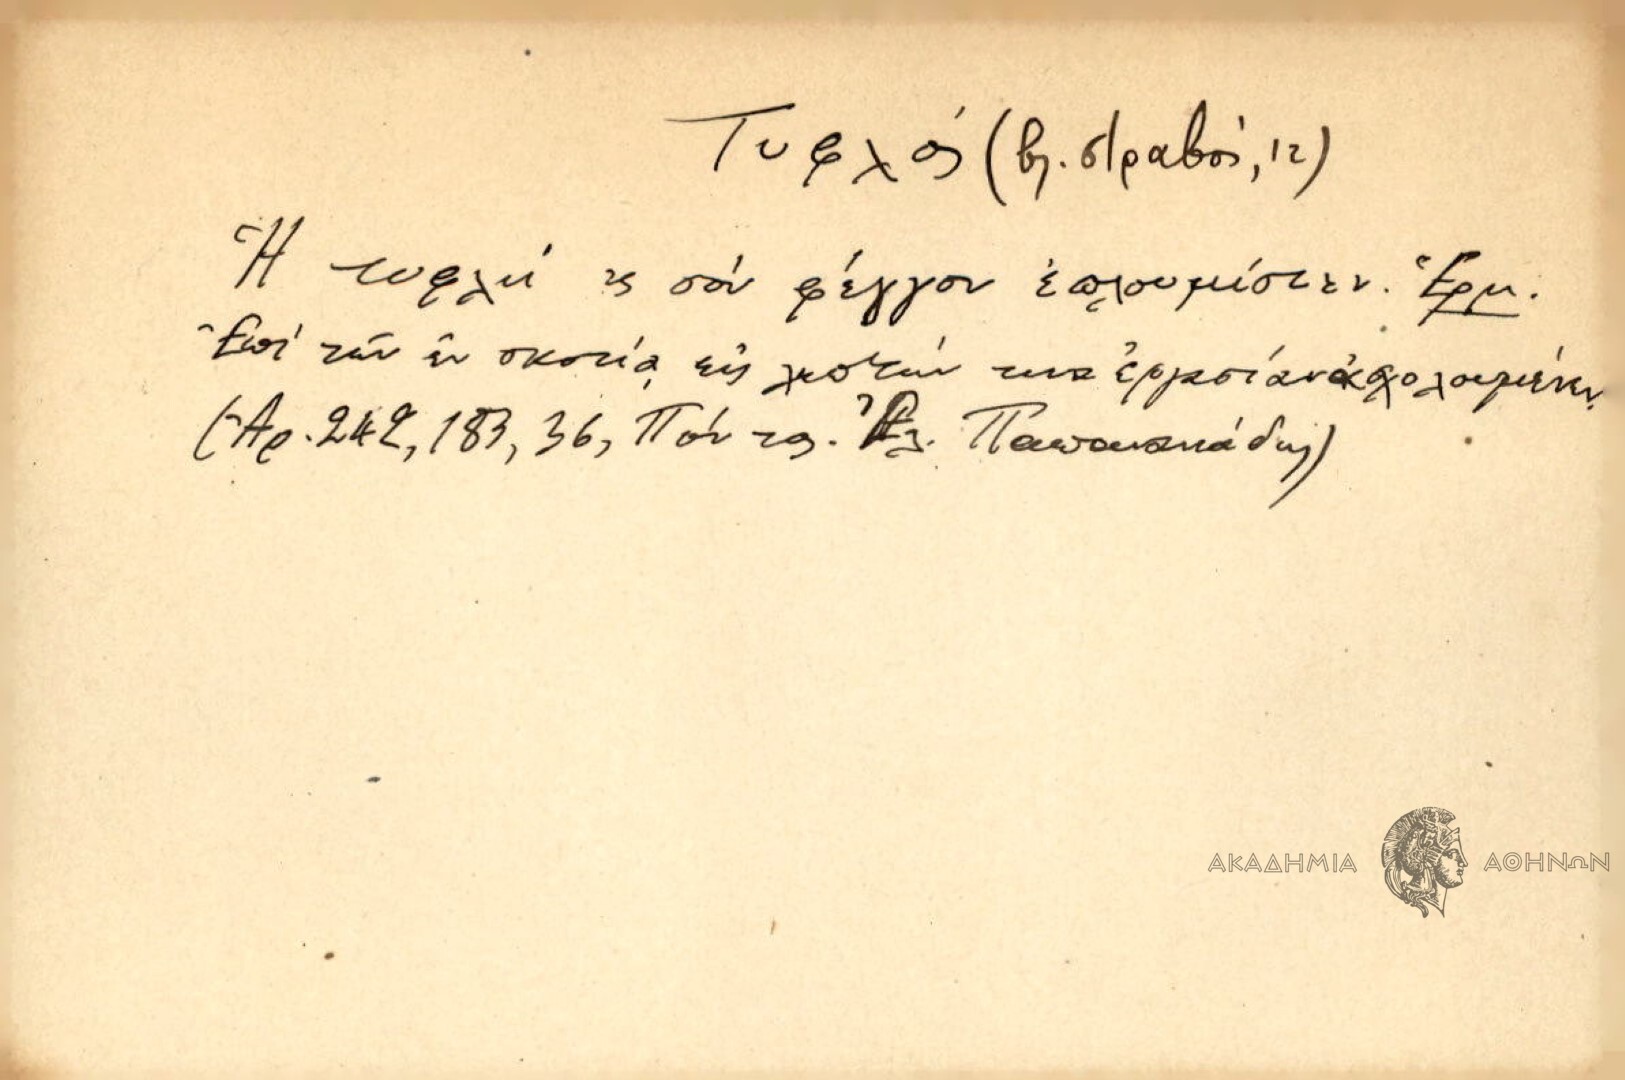 Τυφλός (βλ. στραβός, 12)
Ἡ τυφλή 'ς σόν φέγγον ἐπλουμίστεν. Ἑρμ.
Ἐπί τῶν ἐν σκοτίᾳ εἰς λεπτήν τινα ἐργασίαν ἀσχολουμένων.
(Ἀρ. 242, 183, 36, Πόντος.
ΑΚΑΔΗΜΙΑ ΑΘΗΝΩΝ